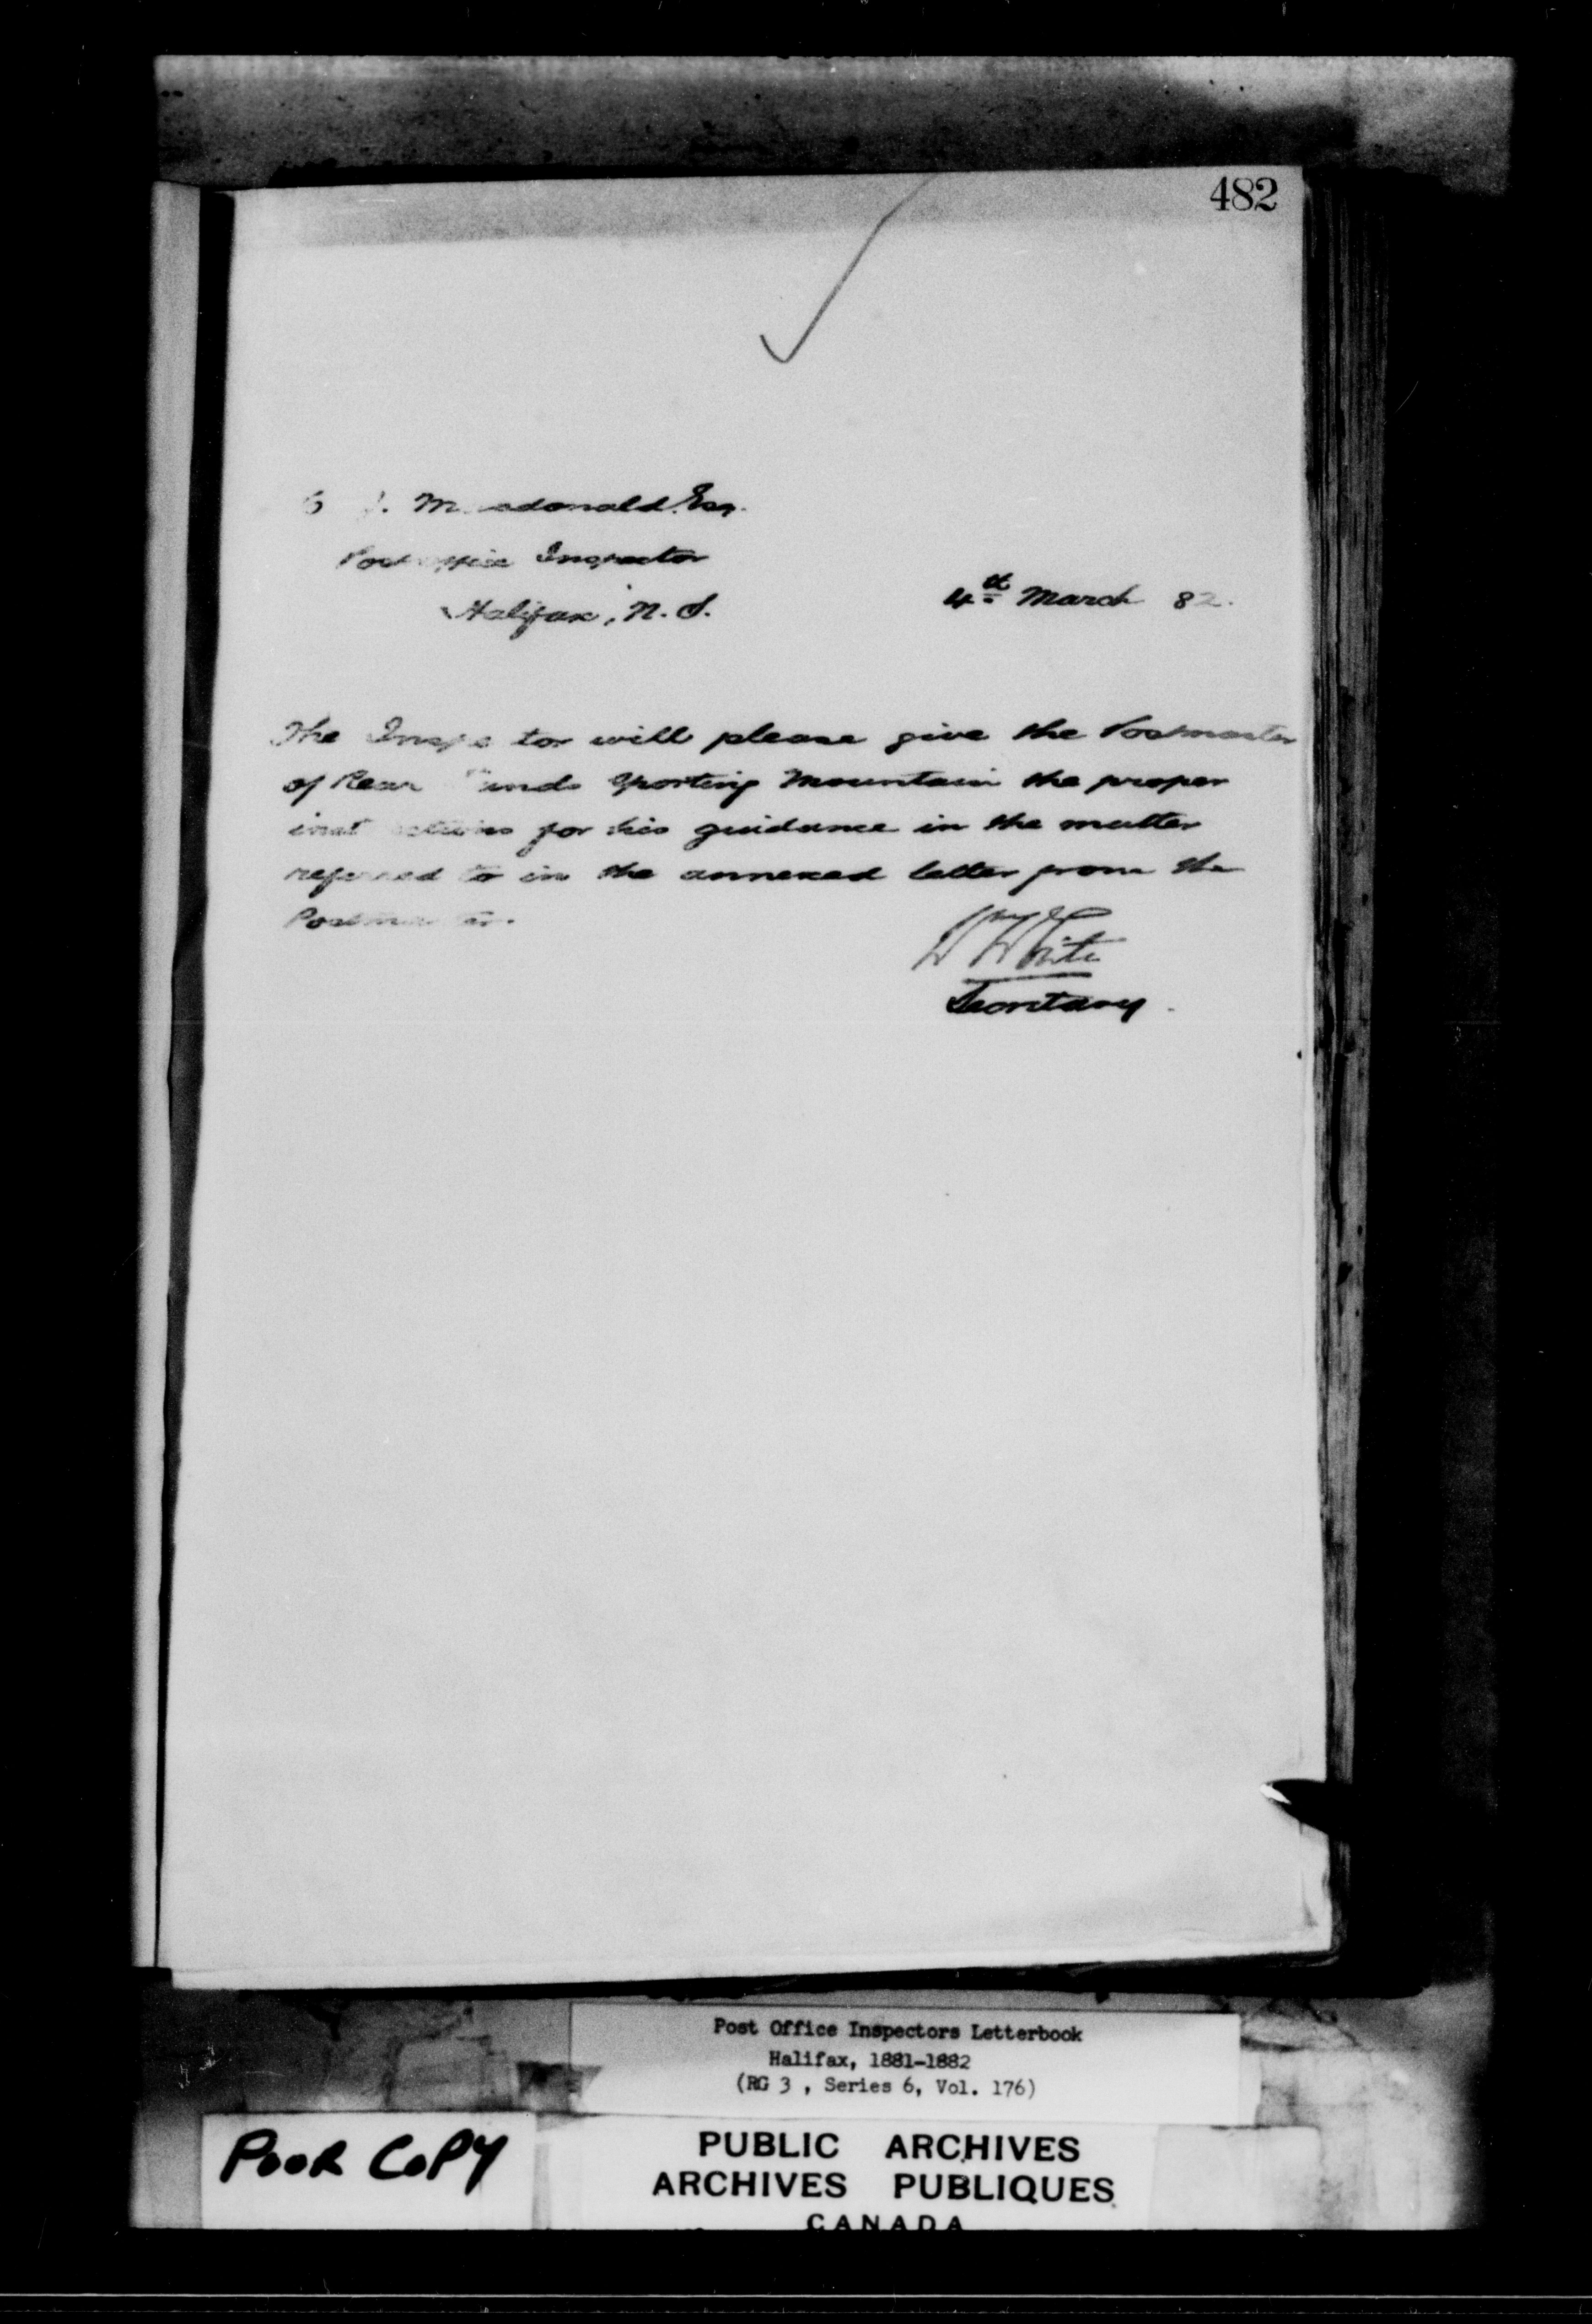 482
J. Macdonald Esq.
Post office Inspector
Halifax, N.S.
4th March 82.
The Inspector will please give the Postmaster
of Rear Lands Sporting Mountain the proper
instructions for his guidance in the matter
referred to in the annexed letter from the
Postmaster.
White
Secretary.
Post Office Inspectors Letterbook
Halifax, 1881-1882
(RG 3 , Series 6, Vol. 176)
POOR COPY
PUBLIC ARCHIVES
ARCHIVES PUBLIQUES
CANADA